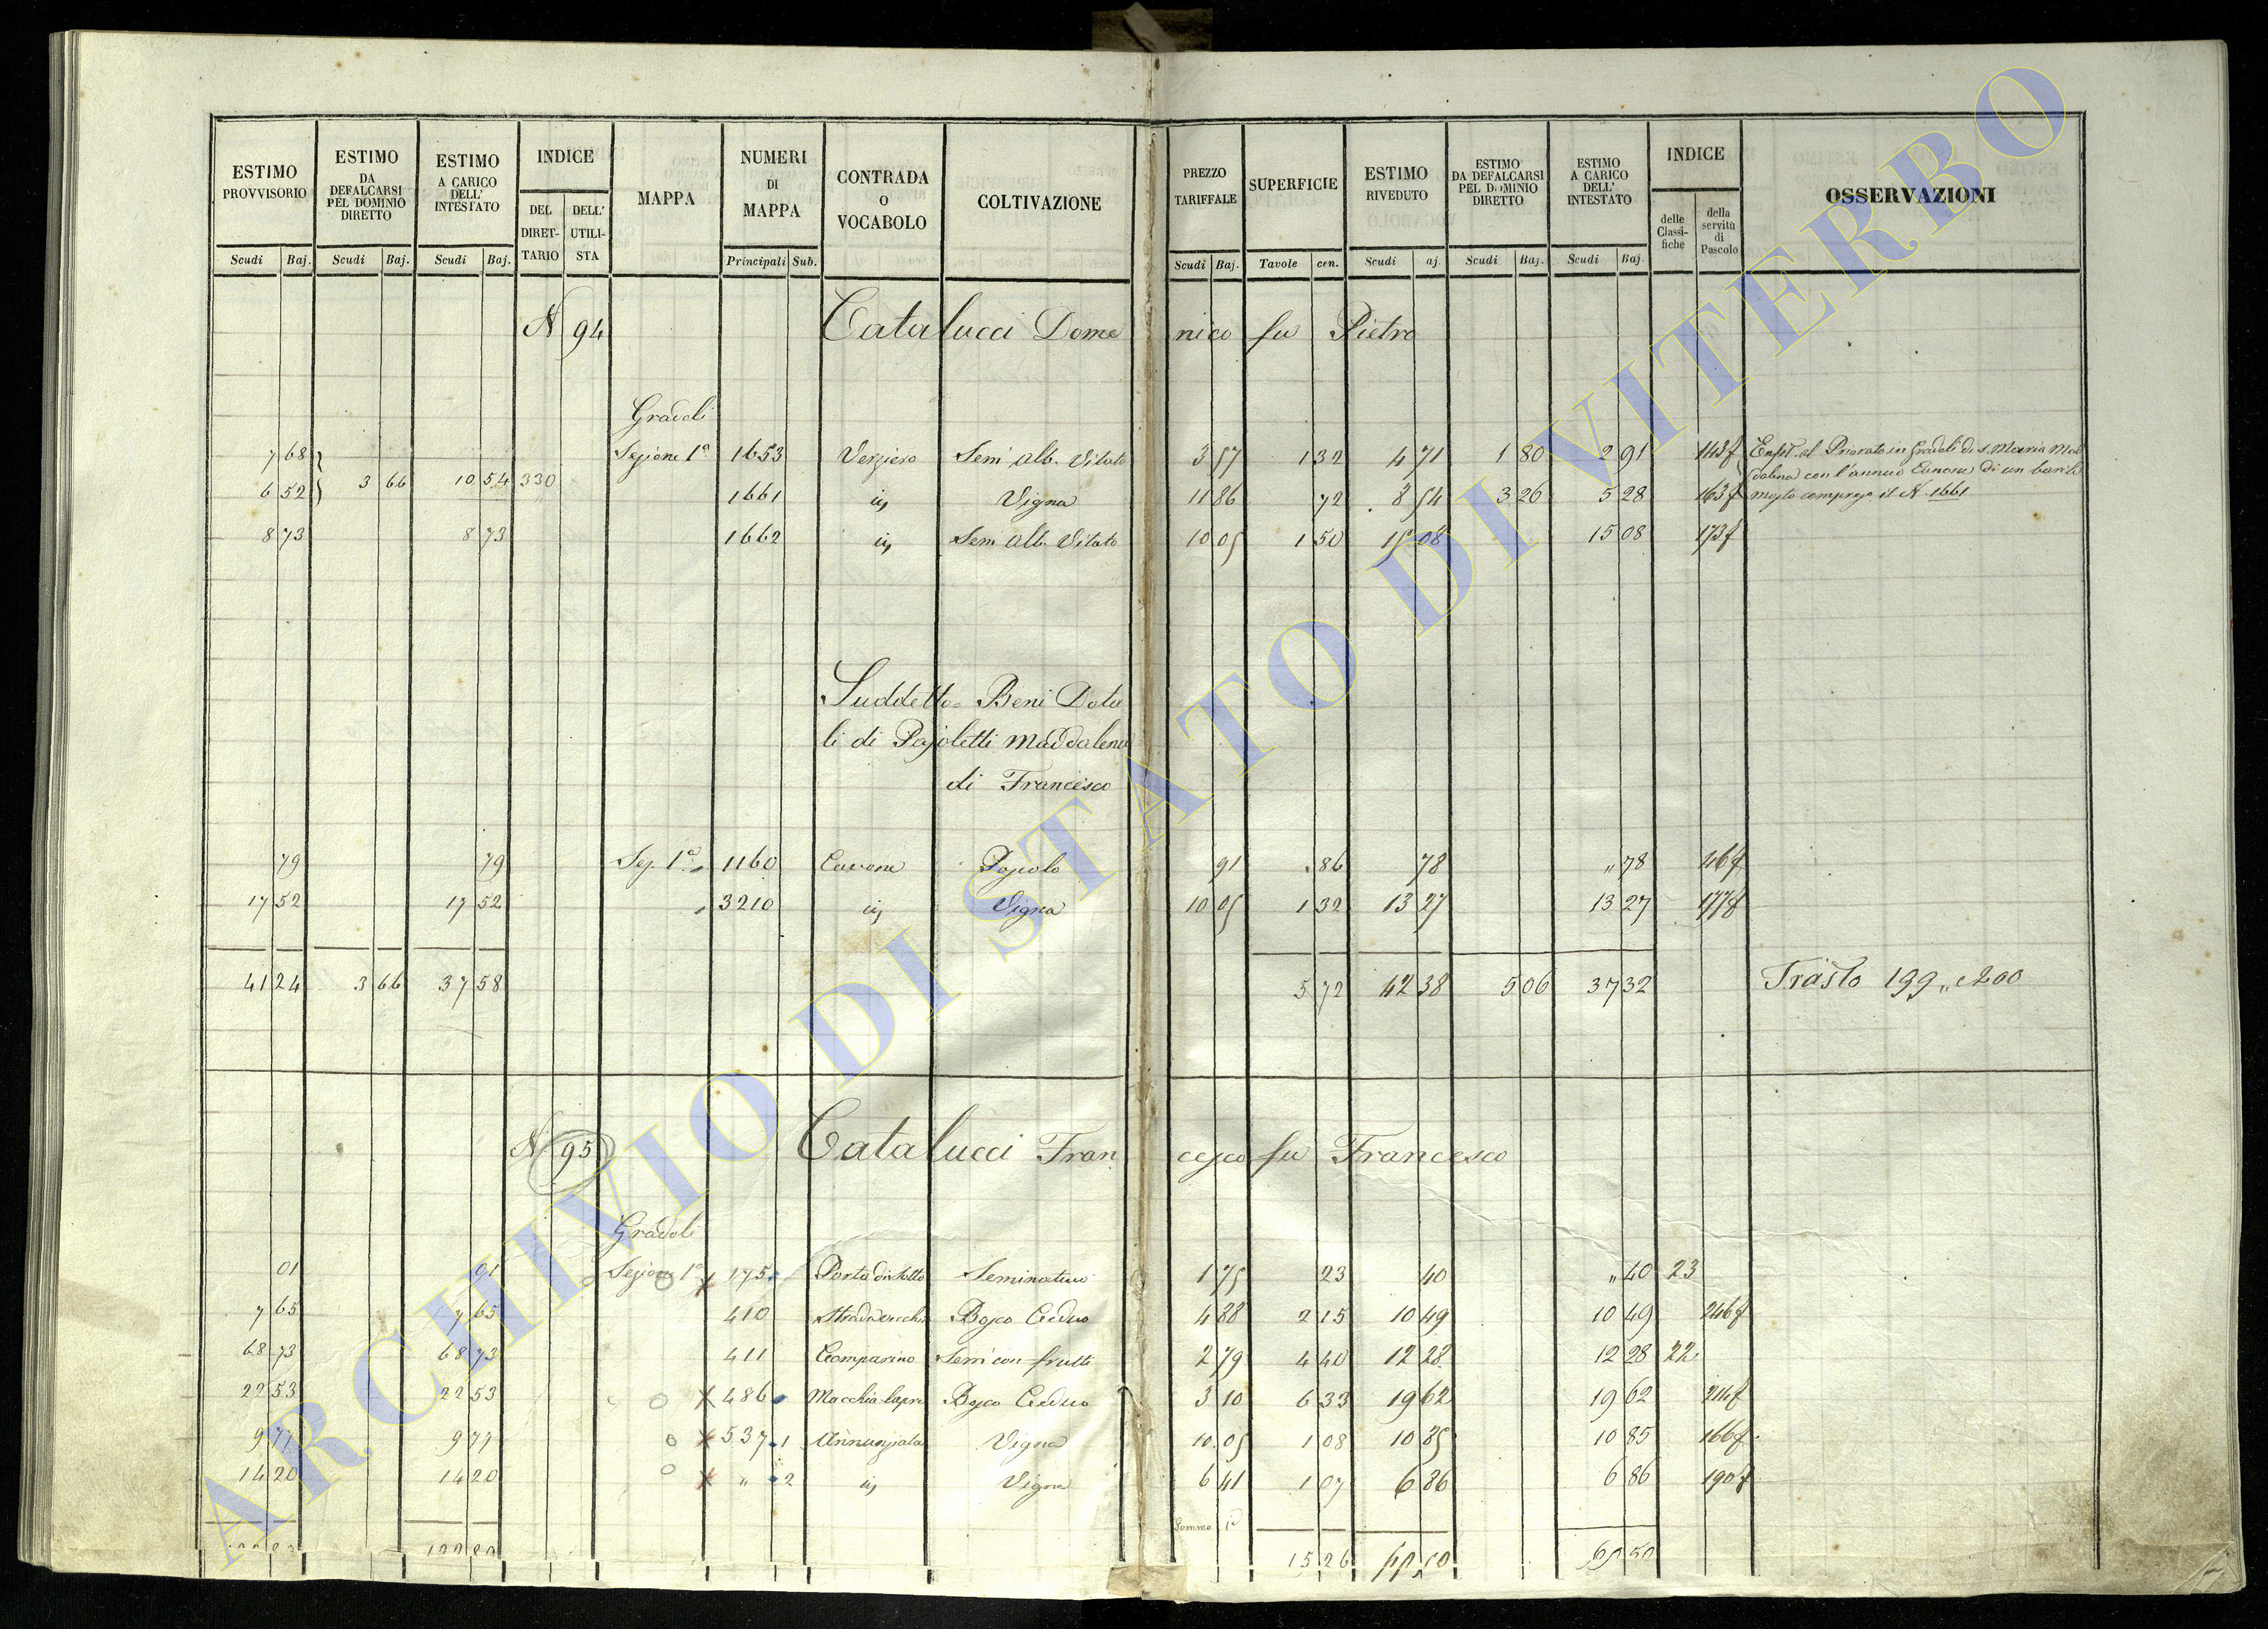 ESTIMO PROVVISORIO | ESTIMO DA DEFALCARSI PEL DOMINIO DIRETTO | ESTIMO A CARICO DELL' INTESTATO | INDICE | MAPPA | NUMERI DI MAPPA | CONTRADA O VOCABOLO | COLTIVAZIONE | PREZZO TARIFFALE | SUPERFICIE | ESTIMO RIVEDUTO | ESTIMO DA DEFALCARSI PEL DOMINIO DIRETTO | ESTIMO A CARICO DELL' INTESTATO | INDICE | OSSERVAZIONI
DEL DIRETTARIO | DELL' UTILISTA | delle Classifiche | della servitù di Pascolo
Scudi | Baj. | Scudi | Baj. | Scudi | Baj. | Principali | Sub. | Scudi | Baj. | Tavole | cen. | Scudi | aj. | Scudi | Baj. | Scudi | Baj.
N 94 Catalucci Domenico fu Pietro
Gradoli
7 68 Sezione 1ª 1653 Verziere Sem Alb. Vitato 3 57 1 32 4 71 1 80 2 91 143f Enfit. al Priorato in Gradoli di S. Maria Mad
3 66 10 54 330 dalena con l'annuo Canone di un barile
6 52 1661 " Vigna 11 86 72 8 54 3 26 5 28 163f mosto compreso il N. 1661
8 73 8 73 1662 " Sem Alb. Vitato 10 05 1 50 15 08 15 08 173f
Suddetto = Beni Dota
li di Pajoletti Maddalena
di Francesco
79 79 Sez. 1ª 1160 Cavone Pascolo 91 86 78 " 78 46f
17 52 17 52 3210 " Vigna 10 05 1 32 13 27 13 27 177f
41 24 3 66 37 58 5 72 42 38 5 06 37 32 Trasto 199 " 200
N 95 Catalucci Francesco fu Francesco
Gradoli
01 01 Sezione 1ª 175 Porta di sotto Seminativo 1 75 23 40 " 40 23
7 65 7 65 410 Strada vecchia Bosco Ceduo 4 88 2 15 10 49 10 49 246f
68 73 68 73 411 Comparino Sem con frutti 2 79 4 40 12 28 12 28 22
22 53 22 53 486 Macchia Bosco Ceduo 3 10 6 33 19 62 19 62 214f
9 77 9 77 537 1 Annunziata Vigna 10 05 1 08 10 85 10 85 166f
14 20 14 20 " 2 " Vigna 6 41 1 07 6 86 6 86 190f
Somma
15 26 60 50 60 50
ARCHIVIO DI STATO DI VITERBO